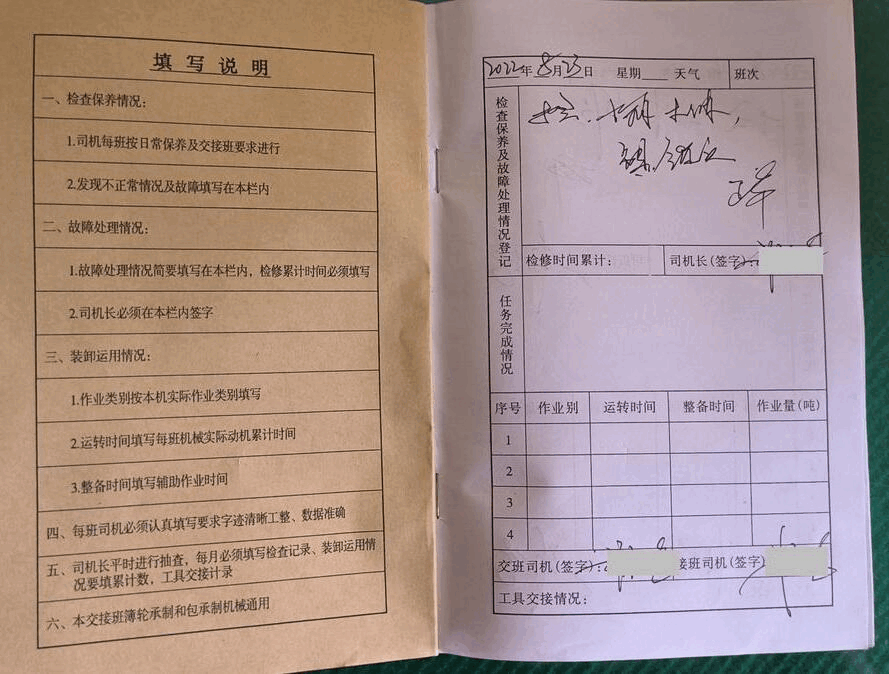 填写说明
一、检查保养情况：
1.司机每班按日常保养及交接班要求进行
2.发现不正常情况及故障填写在本栏内
二、故障处理情况：
1.故障处理情况简要填写在本栏内，检修累计时间必须填写
2.司机长必须在本栏内签字
三、装卸运用情况：
1.作业类别按本机实际作业类别填写
2.运转时间填写每班机械实际动机累计时间
3.整备时间填写辅助作业时间
四、每班司机必须认真填写要求字迹清晰工整、数据准确
五、司机长平时进行抽查，每月必须填写检查记录、装卸运用情
况要填累计数，工具交接计录
六、本交接班簿轮承制和包承制机械通用
2022年8月23日 星期 天气 班次
检查保养及故障处理情况登记
检修时间累计： 司机长(签字)：
任务完成情况
序号 作业别 运转时间 整备时间 作业量(吨)
1
2
3
4
交班司机(签字)： 接班司机(签字)
工具交接情况：